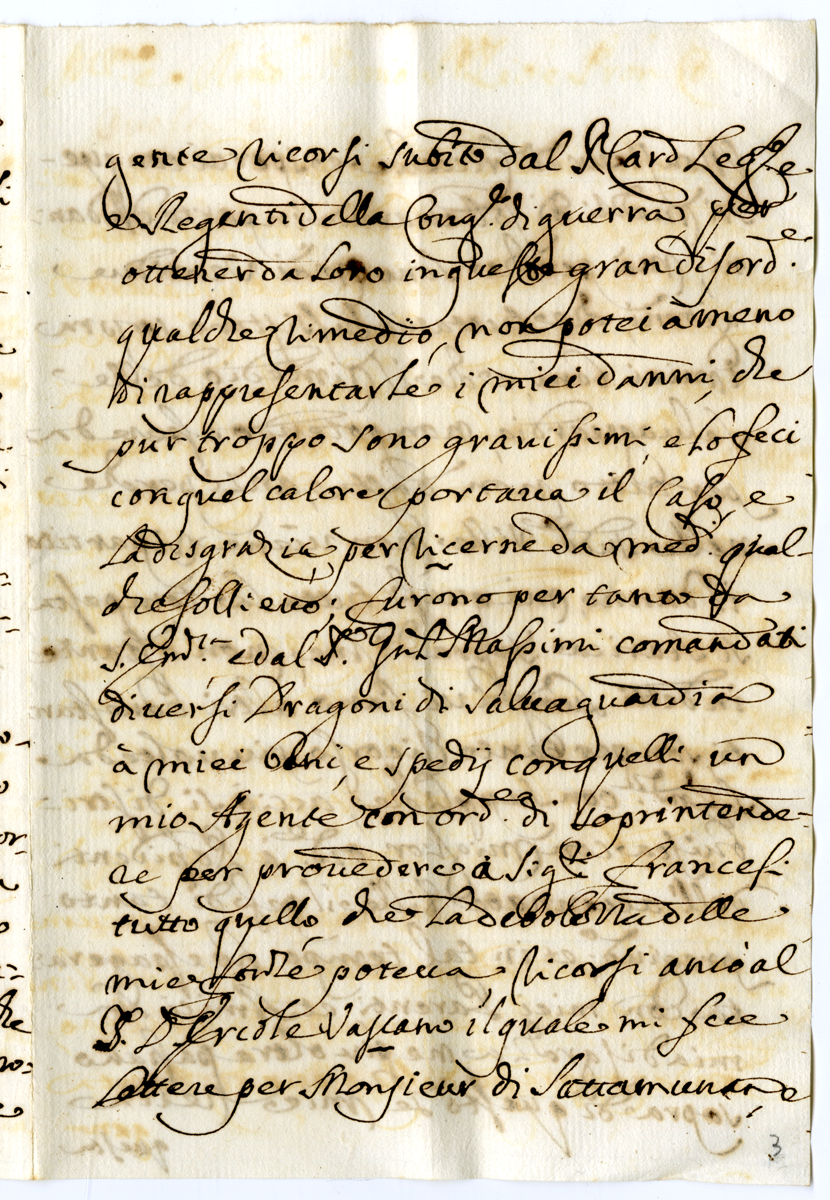 gente ricorsi subito dal S.r Card Leg.to e
e Regenti della Cong.e di guerra, per
ottener da loro in questo gran disord.e
qualche rimedio, non potei à meno
di rappresentarle i miei danni, che
pur troppo sono gravissimi, e lo feci
con quel calore, portava il Caso, e
la disgrazia, per ricerne da med.i qual-
che sollievo; furono per tanto da
S. Em.za e dal S.r Gnl Massimi comandati
diversi Dragoni di salvaguardia
à miei beni, e spedij con quelli un
mio Agente con ord.e di soprintende-
re per provedere à Sig.ri Francesi
tutto quello che la debolezza delle
mie forze poteva, ricorsi ancò al
S.r D. Ercole il quale mi fece
lettere per Monsieur di
3